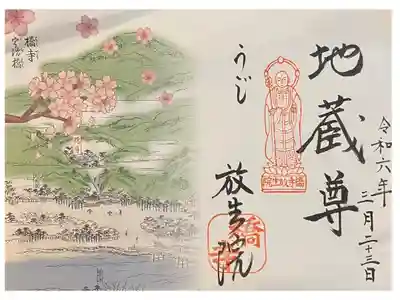 地蔵尊
令和六年
三月二十三日
うじ
放生院
橋寺
橋寺
宇治橋